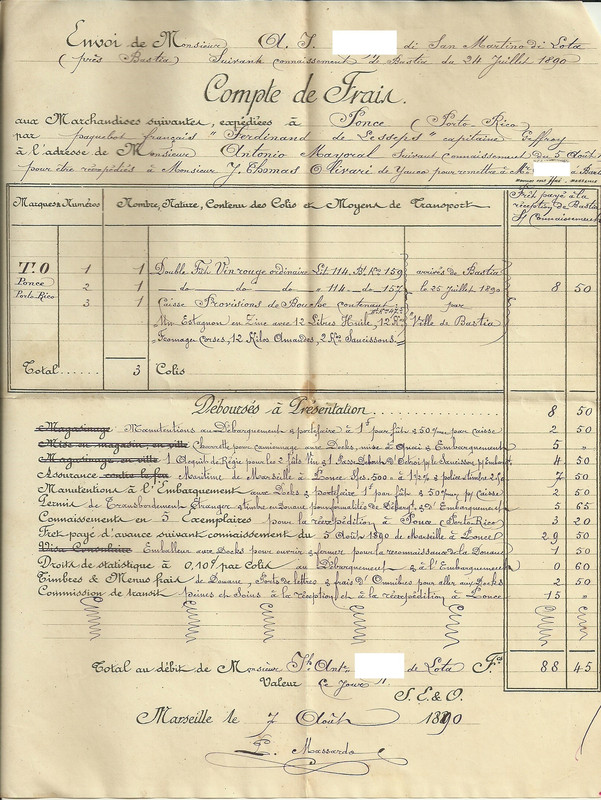 Envoi de Monsieur A. J. di San Martino di Lota
(près Bastia) Suivant connaissement de Bastia du 24 Juillet 1890
Compte de Frais.
aux Marchandises suivantes, expédiées à Ponce (Porto Rico)
par paquebot français "Ferdinand de Lesseps" capitaine Geffroy
à l'adresse de Monsieur Antonio Mayoral Suivant connaissement du 5 Août
pour être réexpédiés à Monsieur J. Thomas Olivari de Yauco pour remettre à Mr
Marques & Numéros Nombre, Nature, Contenu des Colis et Moyens de Transport Fret payé à la réception de Bastia St Connaissement
T.O 1 1 Double Fût Vin rouge ordinaire Lit. 114. Bt Ko 159 arrivés de Bastia
Ponce 2 1 do do do " 114. do 157 le 25 Juillet 1890 8 50
Porto-Rico 3 1 Caisse Provisions de Bouche contenant par
Un Estagnon en Zinc avec 12 Litres Huile, "Ville de Bastia"
Fromages Corses, 12 Kilos Amandes, 2 Ko Saucissons.
Total 3 Colis
Déboursés à Présentation 8 50
Magasinage Manutentions au Débarquement & portefaix à 1f par fût & 50 par caisse 2 50
Mise en magasin, en ville Charrette pour camionnage aux Docks, mise à Quai & Embarquement 5 "
Magasinage en ville 1 Acquit de Régie pour les 2 fûts Vin & 1 Passe Debout d'Octroi pr le Saucisson 4 50
Assurance contre le feu Maritime de Marseille à Ponce Frs. 500 à 1 1/2 % & police 7 50
Manutentions à l'Embarquement aux Docks & portefaix 1f par fût & 50 par caisse 2 50
Permis de Transbordement Etranger & d'Embarquement 5 65
Connaissements en 5 Exemplaires pour la réexpédition à Ponce (Porto-Rico) 3 20
Fret payé d'avance suivant connaissement du 5 Août 1890 de Marseille à Ponce 29 50
Visa Consulaire Emballeur aux Docks pour ouvrir & fermer pour la reconnaissance de la Douane 1 50
Droits de statistique à 0,10c par Colis au Débarquement & à l'Embarquement 0 60
Timbres & Menus frais de Douane, Ports de lettres & frais d'Omnibus pour aller aux Docks 2 50
Commission de transit peines et Soins à la réception et à la réexpédition à Ponce 15 "
Total au débit de Monsieur Jh Ante de Lota Fcs 88 45
Valeur ce Jour
S. E. & O.
Marseille le 7 Août 1890
P. Massardo